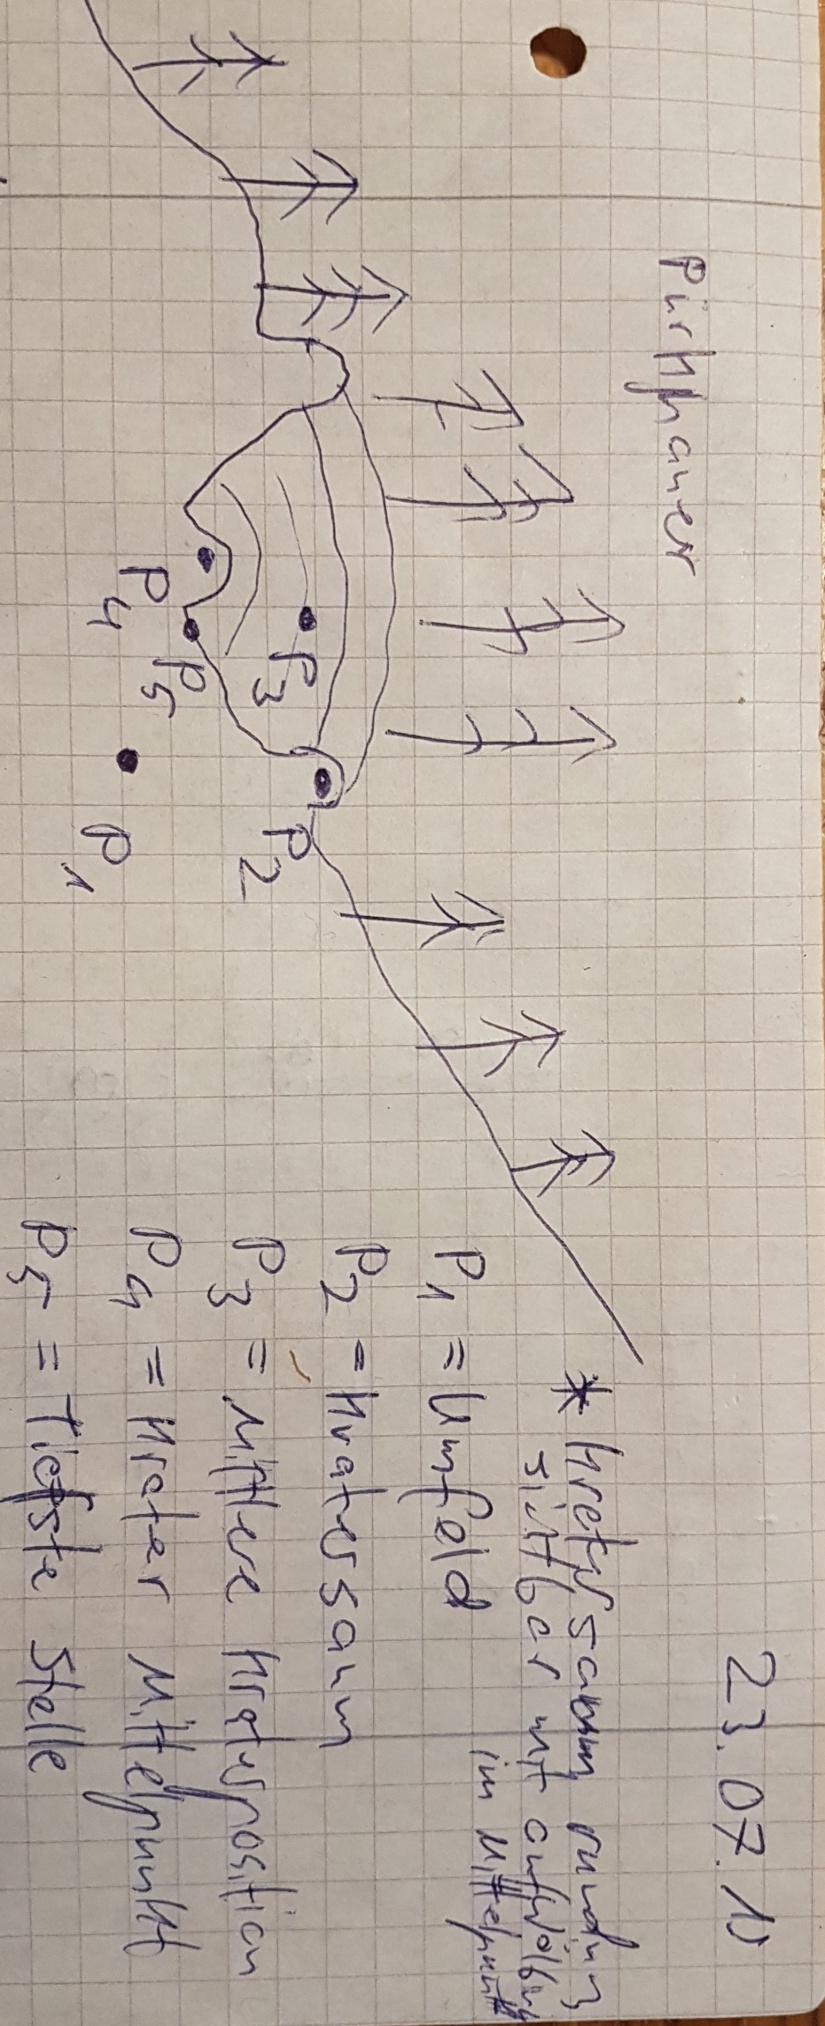 23.07.10
Pürkhauer
* Kratersaum rundum
sichtbar mit aufwölbung
im Mittelpunkt
P1 = Umfeld
P2 = Kratersaum
P3 = Mittlere Kraterposition
P4 = Krater Mittelpunkt
P5 = Tiefste Stelle
P3
P2
P4
P5
P1